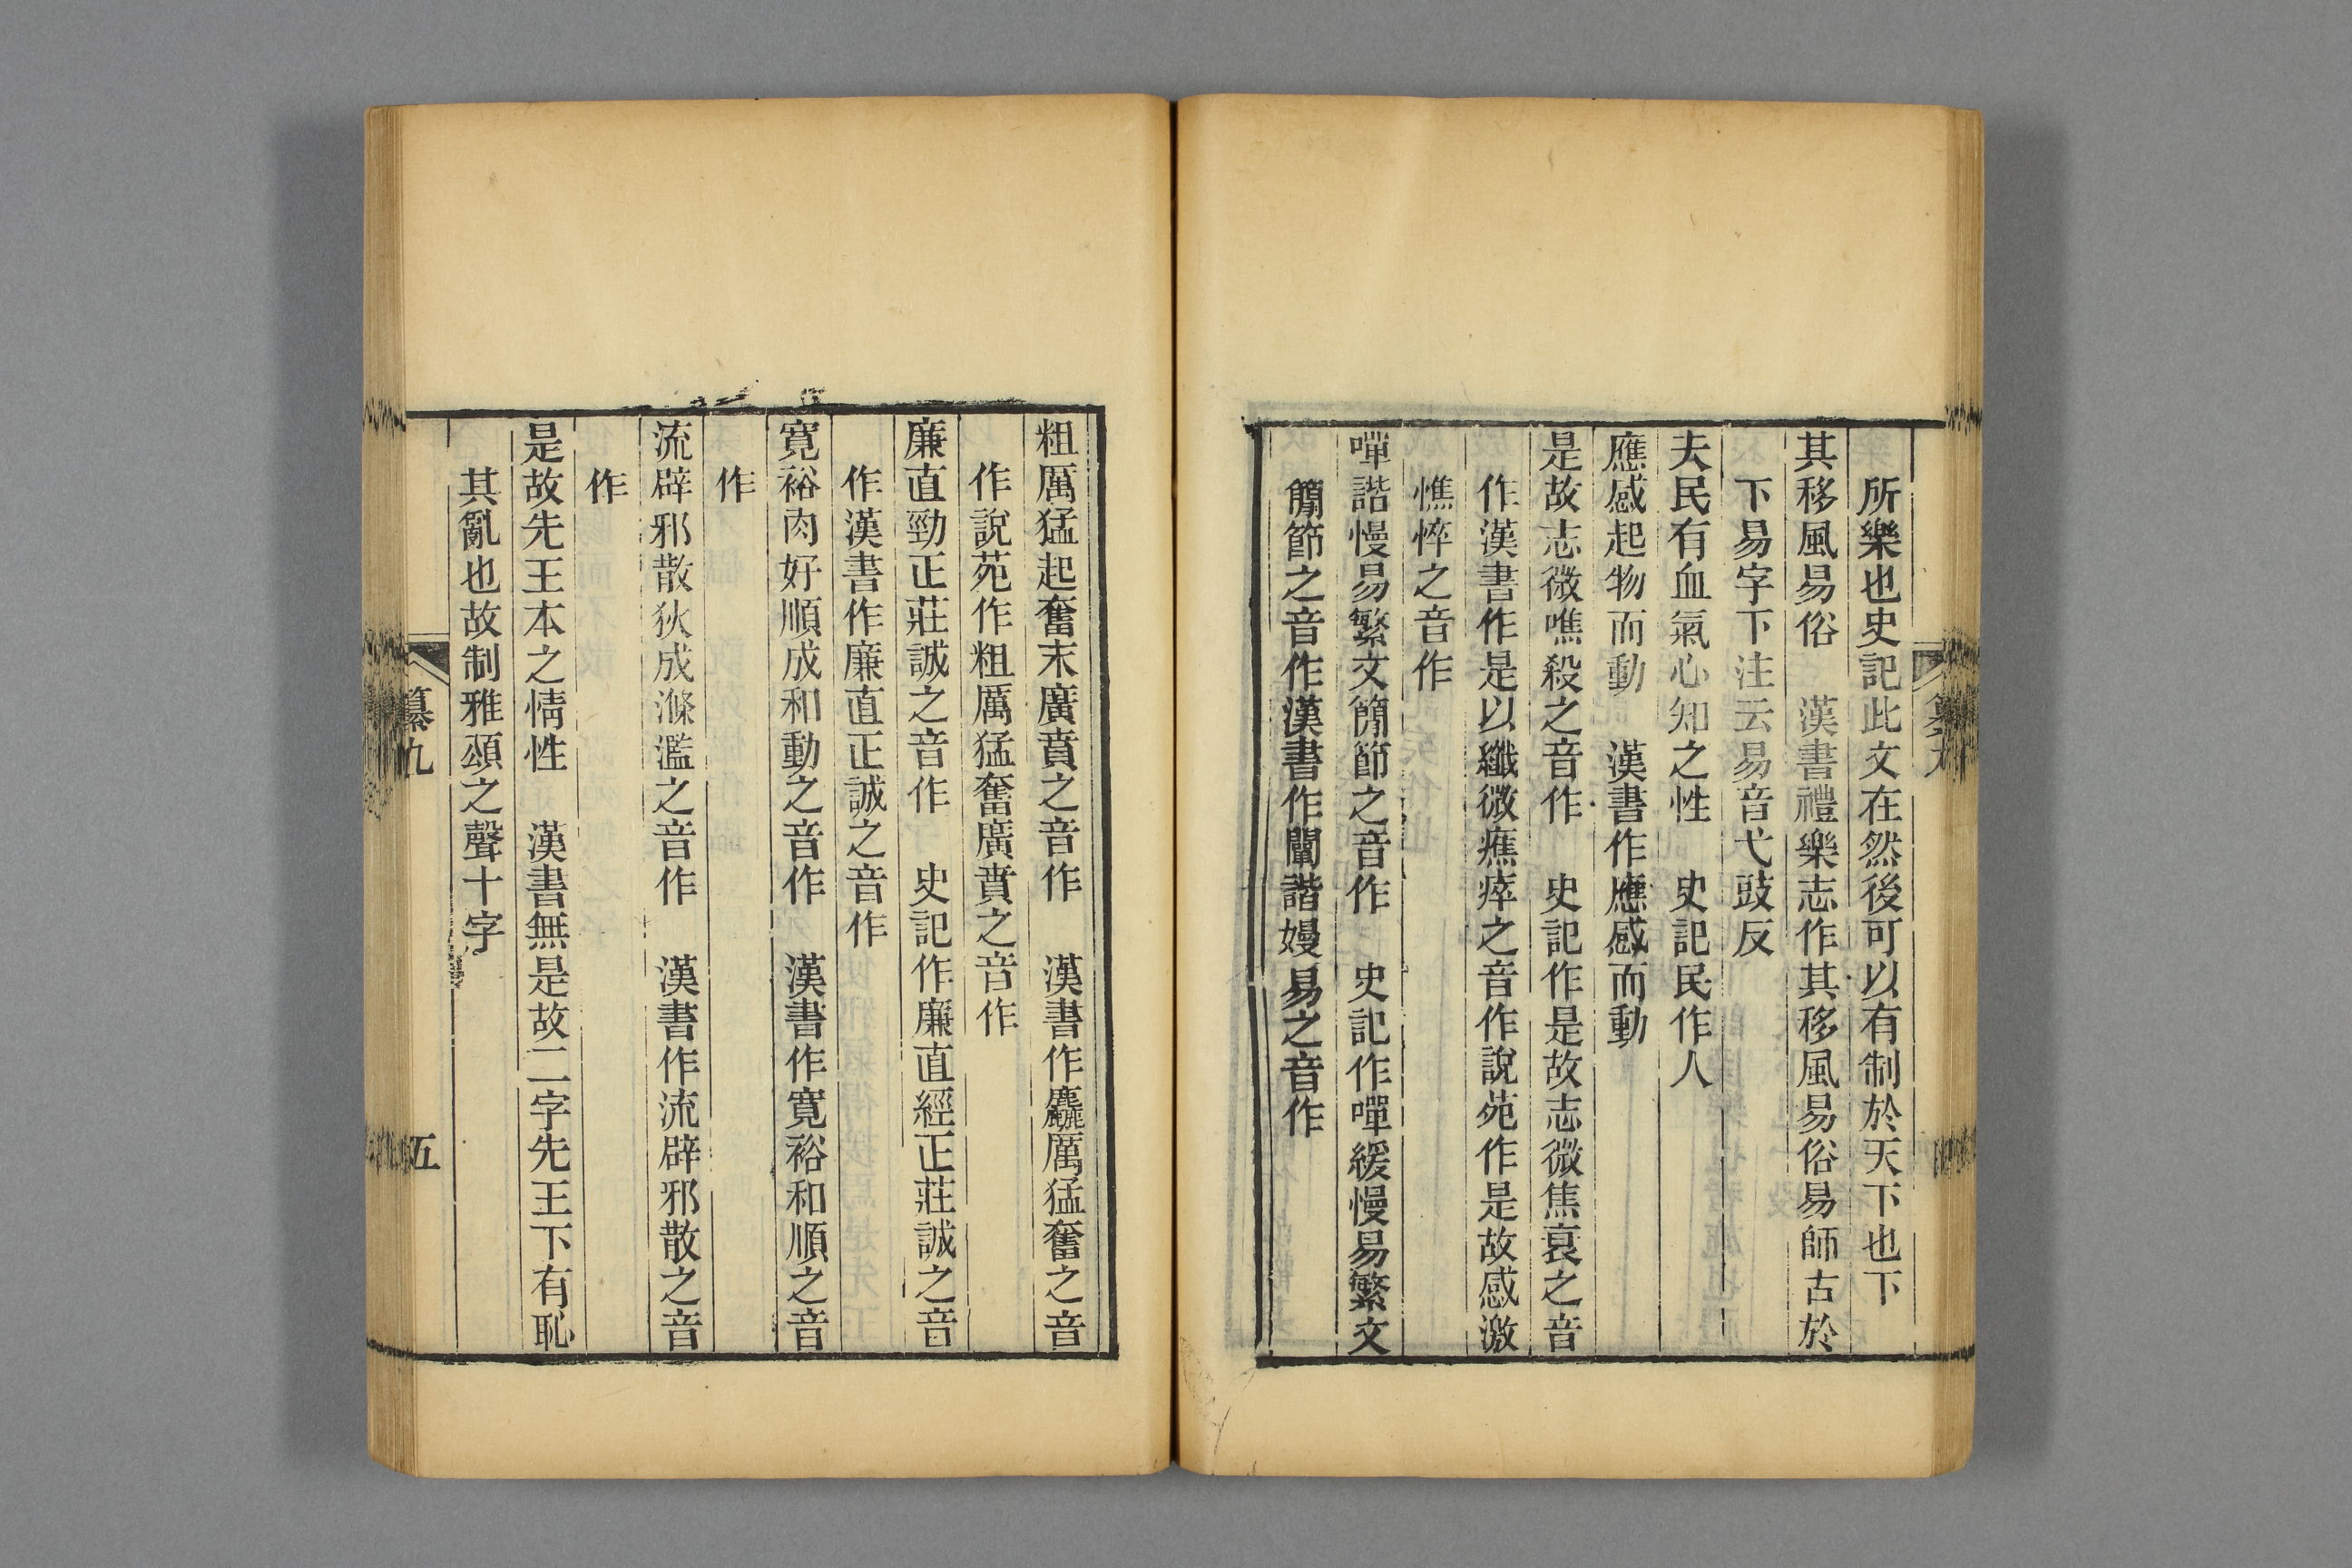 所樂也史記此文在然後可以有制於天下也下
其移風易俗　漢書禮樂志作其移風易俗易師古於
下易字下注云易音弋豉反
夫民有血氣心知之性　史記民作人
應感起物而動　漢書作應感而動
是故志微噍殺之音作　史記作是故志微焦衰之音
作漢書作是以纖微癄瘁之音作說苑作是故感激
憔悴之音作
嘽諧慢易繁文簡節之音作　史記作嘽緩慢易繁文
簡節之音作漢書作闡諧嫚易之音作
粗厲猛起奮末廣賁之音作　漢書作麤厲猛奮之音
作說苑作粗厲猛奮廣賁之音作
廉直勁正莊誠之音作　史記作廉直經正莊誠之音
作漢書作廉直正誠之音作
寬裕肉好順成和動之音作　漢書作寬裕和順之音
作
流辟邪散狄成滌濫之音作　漢書作流辟邪散之音
作
是故先王本之情性　漢書無是故二字先王下有恥
其亂也故制雅頌之聲十字
纂九
五